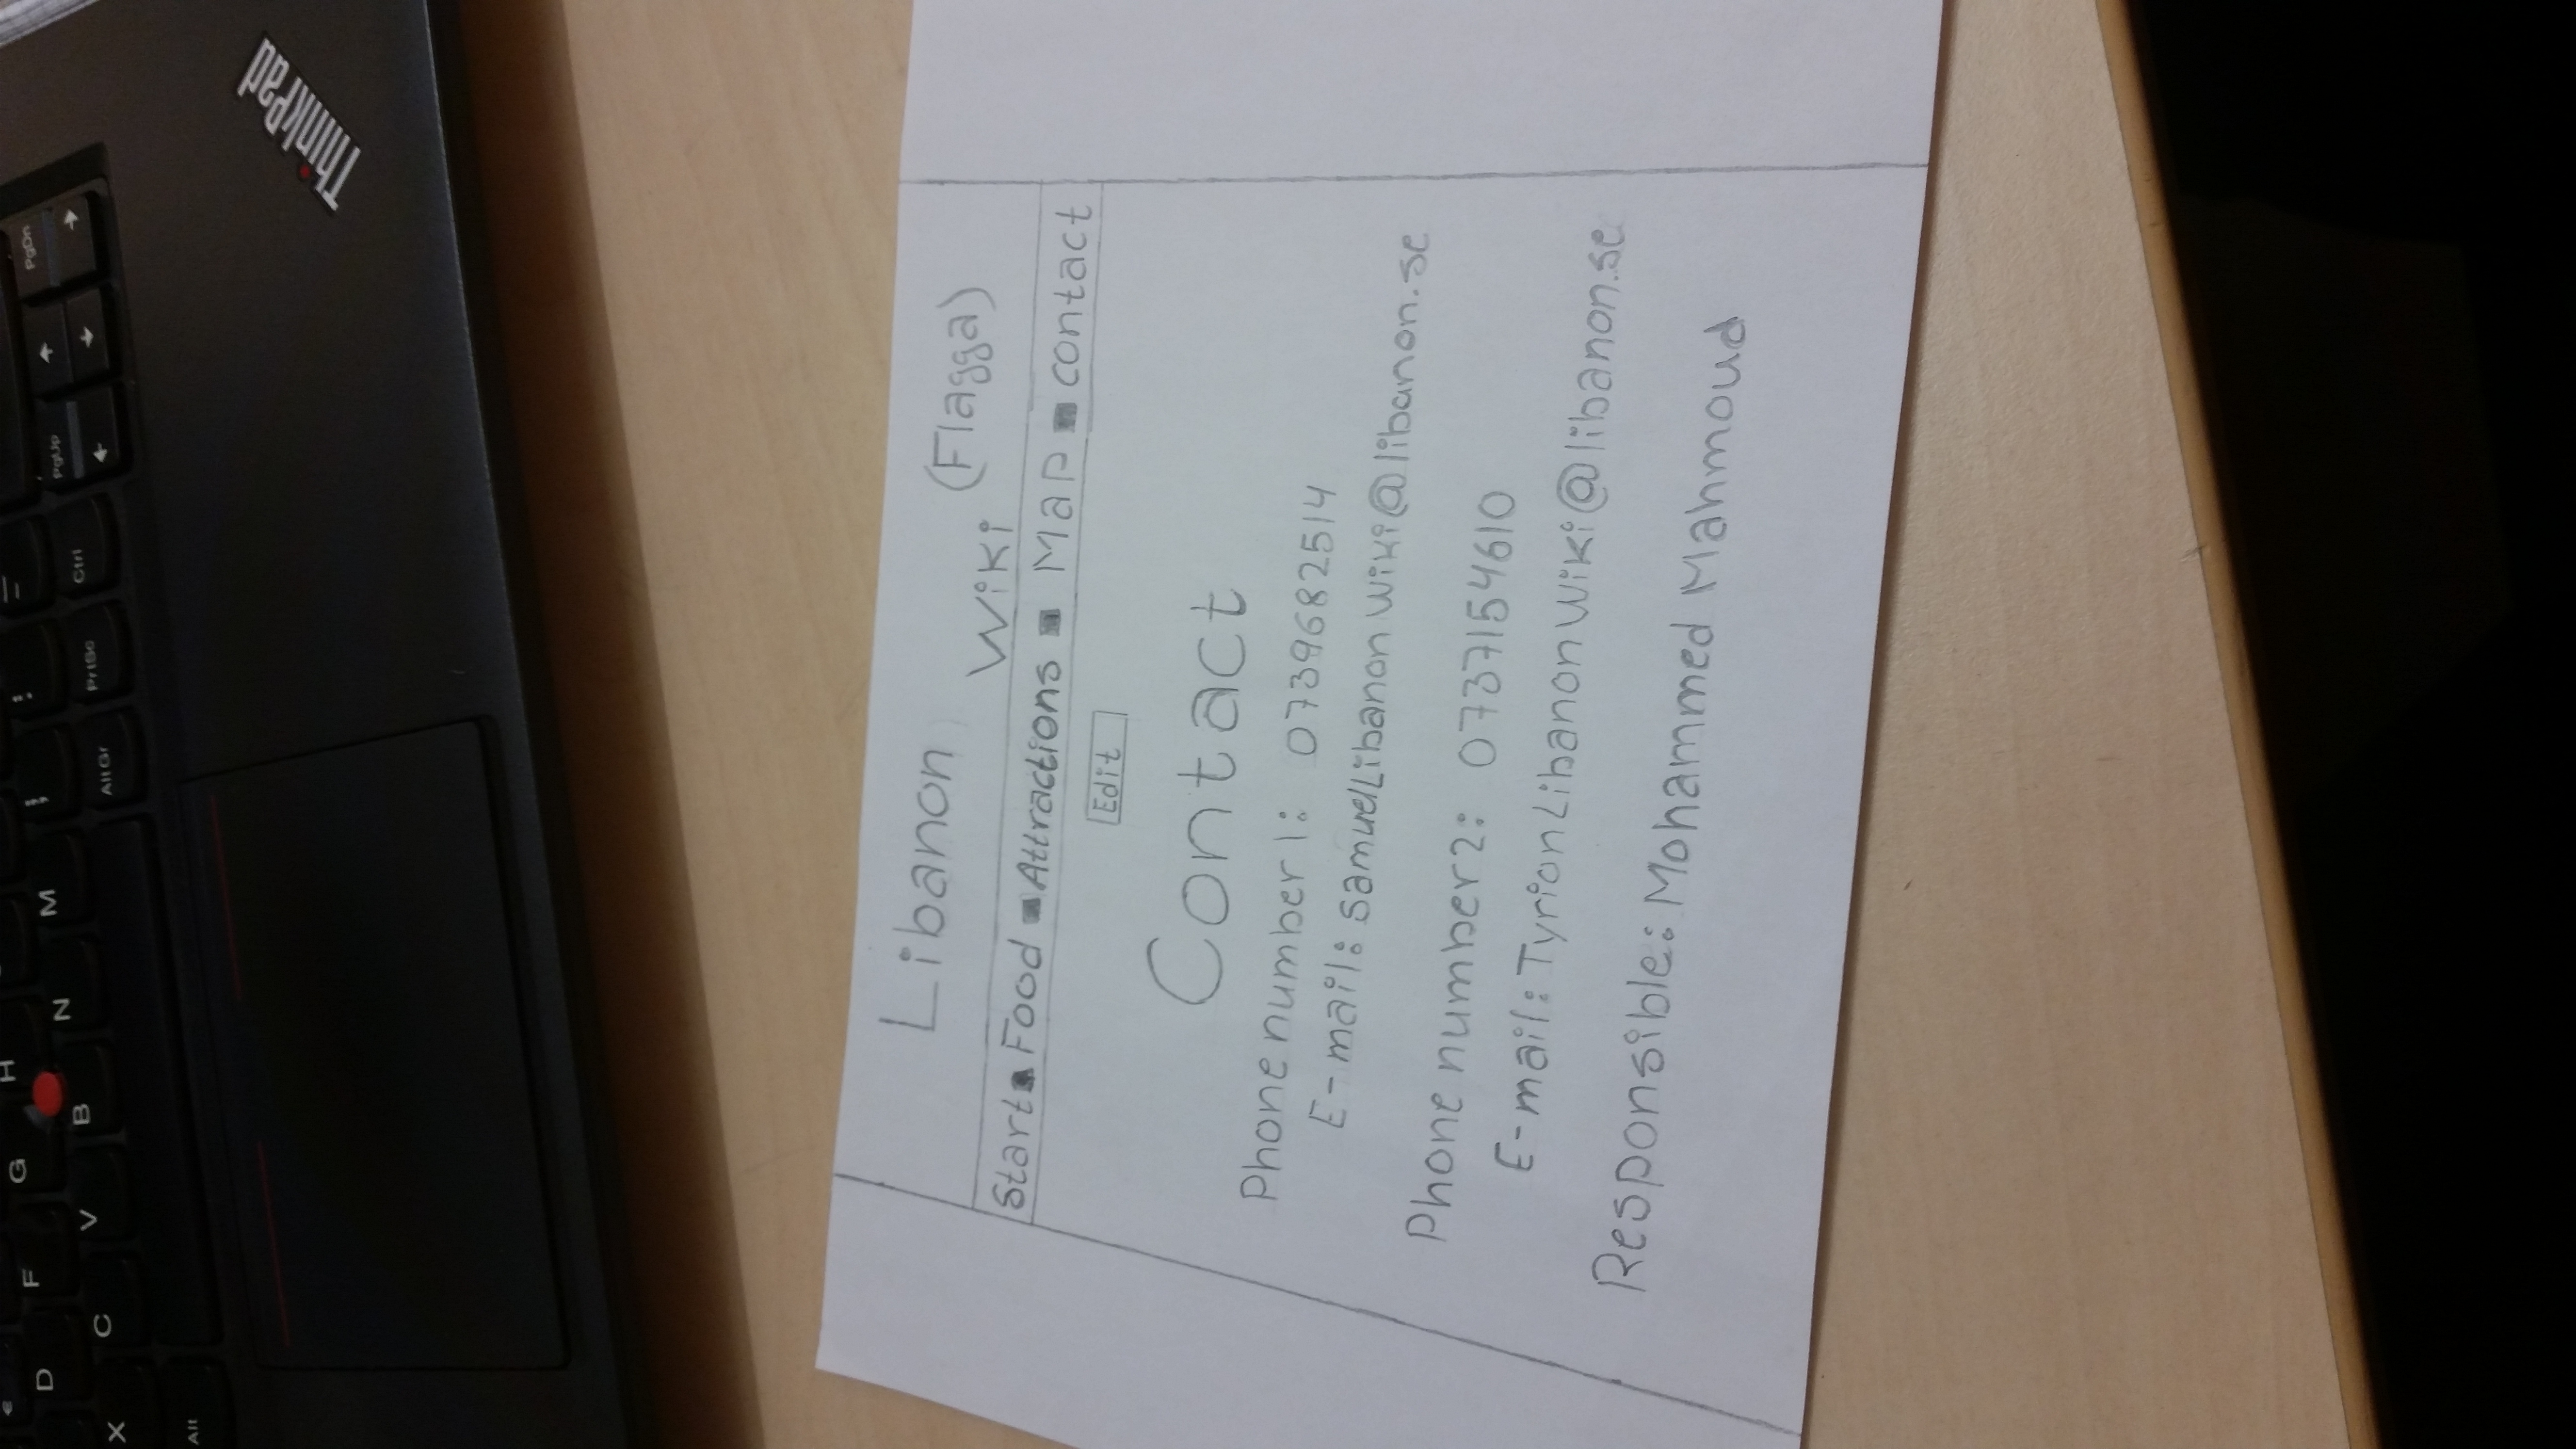 €
D F G H
X C V B N M ; : _
Alt AltGr PrtSc Ctrl PgUp PgDn
ThinkPad
Libanon
Wiki (Flagga)
Start Food Attractions Map contact
Edit
Contact
Phone number 1: 0739682514
E-mail: SamuelLibanonWiki@libanon.se
Phone number 2: 0737154610
E-mail: TyrionLibanonWiki@libanon.se
Responsible: Mohammed Mahmoud